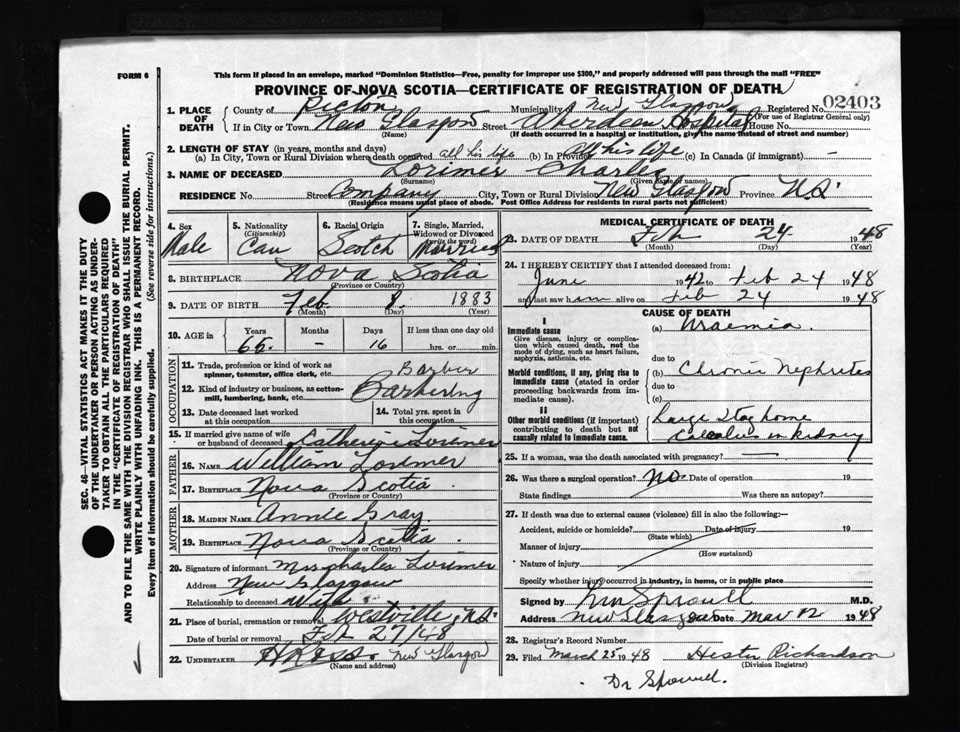 FORM 6
This form if placed in an envelope, marked "Dominion Statistics—Free, penalty for improper use $300," and properly addressed will pass through the mail "FREE"
PROVINCE OF NOVA SCOTIA—CERTIFICATE OF REGISTRATION OF DEATH
1. PLACE OF DEATH
County of Pictou Municipality of New Glasgow Registered No. 02403
(For use of Registrar General only)
If in City or Town New Glasgow Street Aberdeen Hospital House No.
(Name) (If death occurred in a hospital or institution, give the name instead of street and number)
2. LENGTH OF STAY (in years, months and days)
(a) In City, Town or Rural Division where death occurred all his life (b) In Province all his life (c) In Canada (if immigrant) —
3. NAME OF DECEASED Lorimer Charles
(Surname) (Given name or names)
RESIDENCE No. Street Company City, Town or Rural Division New Glasgow Province N.S.
(Residence means usual place of abode. Post Office Address for residents in rural parts not sufficient)
4. Sex Male
5. Nationality (Citizenship) Can
6. Racial Origin Scotch
7. Single, Married, Widowed or Divorced (write the word) Married
8. BIRTHPLACE Nova Scotia
(Province or Country)
9. DATE OF BIRTH Feb. 8. 1883
(Month) (Day) (Year)
10. AGE in Years Months Days If less than one day old
65 — 16 hrs. or min.
OCCUPATION
11. Trade, profession or kind of work as spinner, teamster, office clerk, etc. Barber
12. Kind of industry or business, as cotton-mill, lumbering, bank, etc. Barbering
13. Date deceased last worked at this occupation
14. Total yrs. spent in this occupation
15. If married give name of wife or husband of deceased Catherine Lorimer
FATHER
16. NAME William Lorimer
17. BIRTHPLACE Nova Scotia
(Province or Country)
MOTHER
18. MAIDEN NAME Annie Gray
19. BIRTHPLACE Nova Scotia.
(Province or Country)
20. Signature of informant Mrs Charles Lorimer
Address New Glasgow
Relationship to deceased Wife
21. Place of burial, cremation or removal Westville, N.S.
Date of burial or removal Feb 27/48
22. UNDERTAKER H Ross. New Glasgow
(Name and address)
MEDICAL CERTIFICATE OF DEATH
23. DATE OF DEATH Feb 24 1948
(Month) (Day) (Year)
24. I HEREBY CERTIFY that I attended deceased from:
June 1942 to Feb 24 1948
and last saw him alive on Feb 24 1948
CAUSE OF DEATH
I
Immediate cause
Give disease, injury or complication which caused death, not the mode of dying, such as heart failure, asphyxia, asthenia, etc.
(a) Uraemia.
due to
Morbid conditions, if any, giving rise to immediate cause (stated in order proceeding backwards from immediate cause).
(b) Chronic Nephrites
due to
(c)
II
Other morbid conditions (if important) contributing to death but not causally related to immediate cause.
Large Stag horne
Calculus in kidney
25. If a woman, was the death associated with pregnancy? —
26. Was there a surgical operation? No Date of operation 19
State findings Was there an autopsy?
27. If death was due to external causes (violence) fill in also the following:—
Accident, suicide or homicide? Date of injury 19
(State which)
Manner of injury
(How sustained)
Nature of injury
Specify whether injury occurred in industry, in home, or in public place
Signed by Sproull M.D.
Address New Glasgow Date Mar 12 1948
28. Registrar's Record Number
29. Filed March 25 1948 Hester Richardson
(Division Registrar)
Dr Sproull.
SEC. 46—VITAL STATISTICS ACT MAKES IT THE DUTY
OF THE UNDERTAKER OR PERSON ACTING AS UNDERTAKER TO OBTAIN ALL THE PARTICULARS REQUIRED
IN THE "CERTIFICATE OF REGISTRATION OF DEATH"
AND TO FILE THE SAME WITH THE DIVISION REGISTRAR WHO SHALL ISSUE THE BURIAL PERMIT.
WRITE PLAINLY WITH UNFADING INK. THIS IS A PERMANENT RECORD.
Every item of information should be carefully supplied. (See reverse side for instructions.)